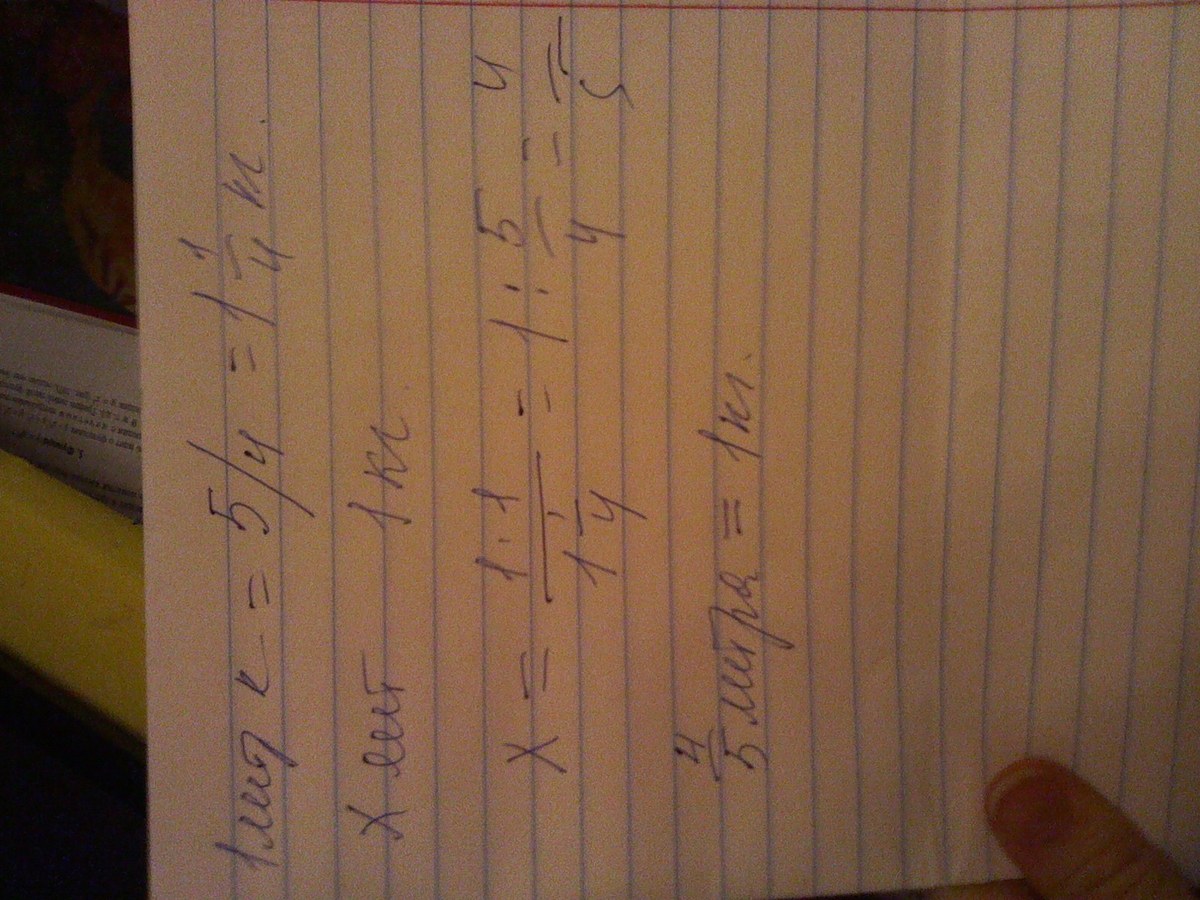 1 литр к = 5/4 = 1 1/4 кг.
X лит 1 кг.
X = 1·1 / 1 1/4 = 1 : 5/4 = 4/5
4/5 литра = 1 кг.